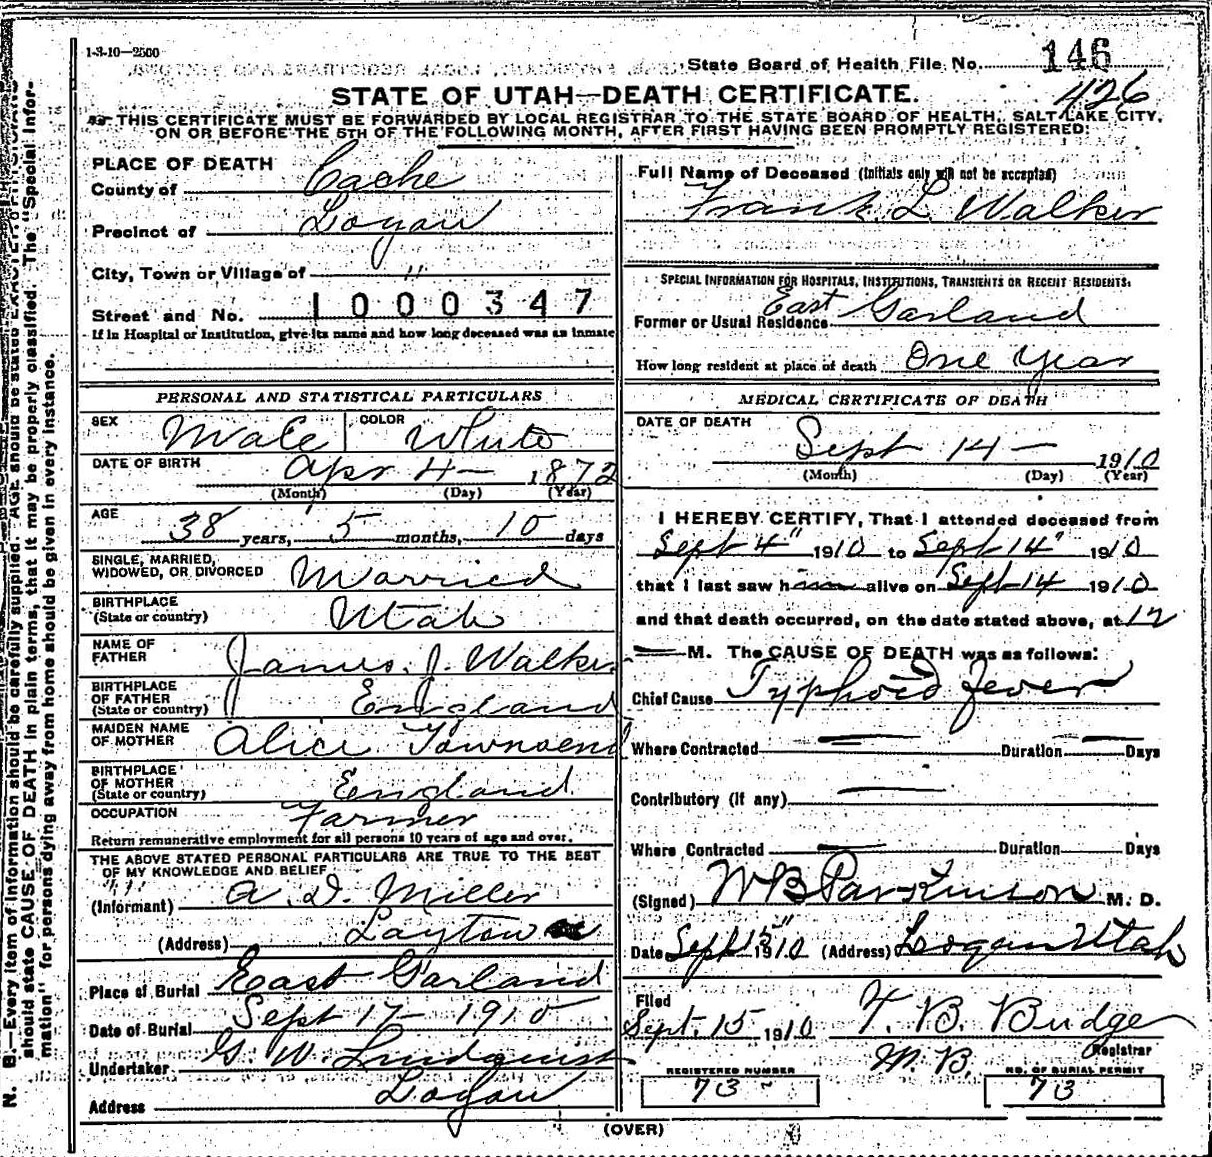 1-3-10—2500
State Board of Health File No. 146
426
STATE OF UTAH—DEATH CERTIFICATE.
THIS CERTIFICATE MUST BE FORWARDED BY LOCAL REGISTRAR TO THE STATE BOARD OF HEALTH, SALT LAKE CITY,
ON OR BEFORE THE 5TH OF THE FOLLOWING MONTH, AFTER FIRST HAVING BEEN PROMPTLY REGISTERED:
PLACE OF DEATH
County of Cache
Precinct of Logan
City, Town or Village of "
Street and No. 1000347
If in Hospital or Institution, give its name and how long deceased was an inmate
PERSONAL AND STATISTICAL PARTICULARS
SEX Male COLOR White
DATE OF BIRTH Apr 4— 1872
(Month) (Day) (Year)
AGE 38 years, 5 months, 10 days
SINGLE, MARRIED,
WIDOWED, OR DIVORCED Married
BIRTHPLACE
(State or country) Utah
NAME OF
FATHER James J. Walker
BIRTHPLACE
OF FATHER
(State or country) England
MAIDEN NAME
OF MOTHER Alice Townsend
BIRTHPLACE
OF MOTHER
(State or country) England
OCCUPATION Farmer
Return remunerative employment for all persons 10 years of age and over.
THE ABOVE STATED PERSONAL PARTICULARS ARE TRUE TO THE BEST
OF MY KNOWLEDGE AND BELIEF
(Informant) A. D. Miller
(Address) Layton
Place of Burial East Garland
Date of Burial Sept 17— 1910
Undertaker G. W. Lindquist
Address Logan
Full Name of Deceased (Initials only will not be accepted)
Frank L. Walker
SPECIAL INFORMATION FOR HOSPITALS, INSTITUTIONS, TRANSIENTS OR RECENT RESIDENTS.
Former or Usual Residence East Garland
How long resident at place of death One Year
MEDICAL CERTIFICATE OF DEATH
DATE OF DEATH
Sept 14— 1910
(Month) (Day) (Year)
I HEREBY CERTIFY, That I attended deceased from
Sept 4" 1910 to Sept 14" 1910
that I last saw him alive on Sept 14 1910
and that death occurred, on the date stated above, at 12
— M. The CAUSE OF DEATH was as follows:
Chief Cause Typhoid fever
Where Contracted — Duration — Days
Contributory (if any) —
Where Contracted — Duration Days
(Signed) W B Parkinson M. D.
Date Sept 15" 1910 (Address) Logan Utah
Filed
Sept. 15 1910 T. B. Budge
M. B. Registrar
REGISTERED NUMBER
73
NO. OF BURIAL PERMIT
73
(OVER)
N. B.—Every item of information should be carefully supplied. AGE should be stated EXACTLY.
should state CAUSE OF DEATH in plain terms, that it may be properly classified. The "Special Infor-
mation" for persons dying away from home should be given in every instance.